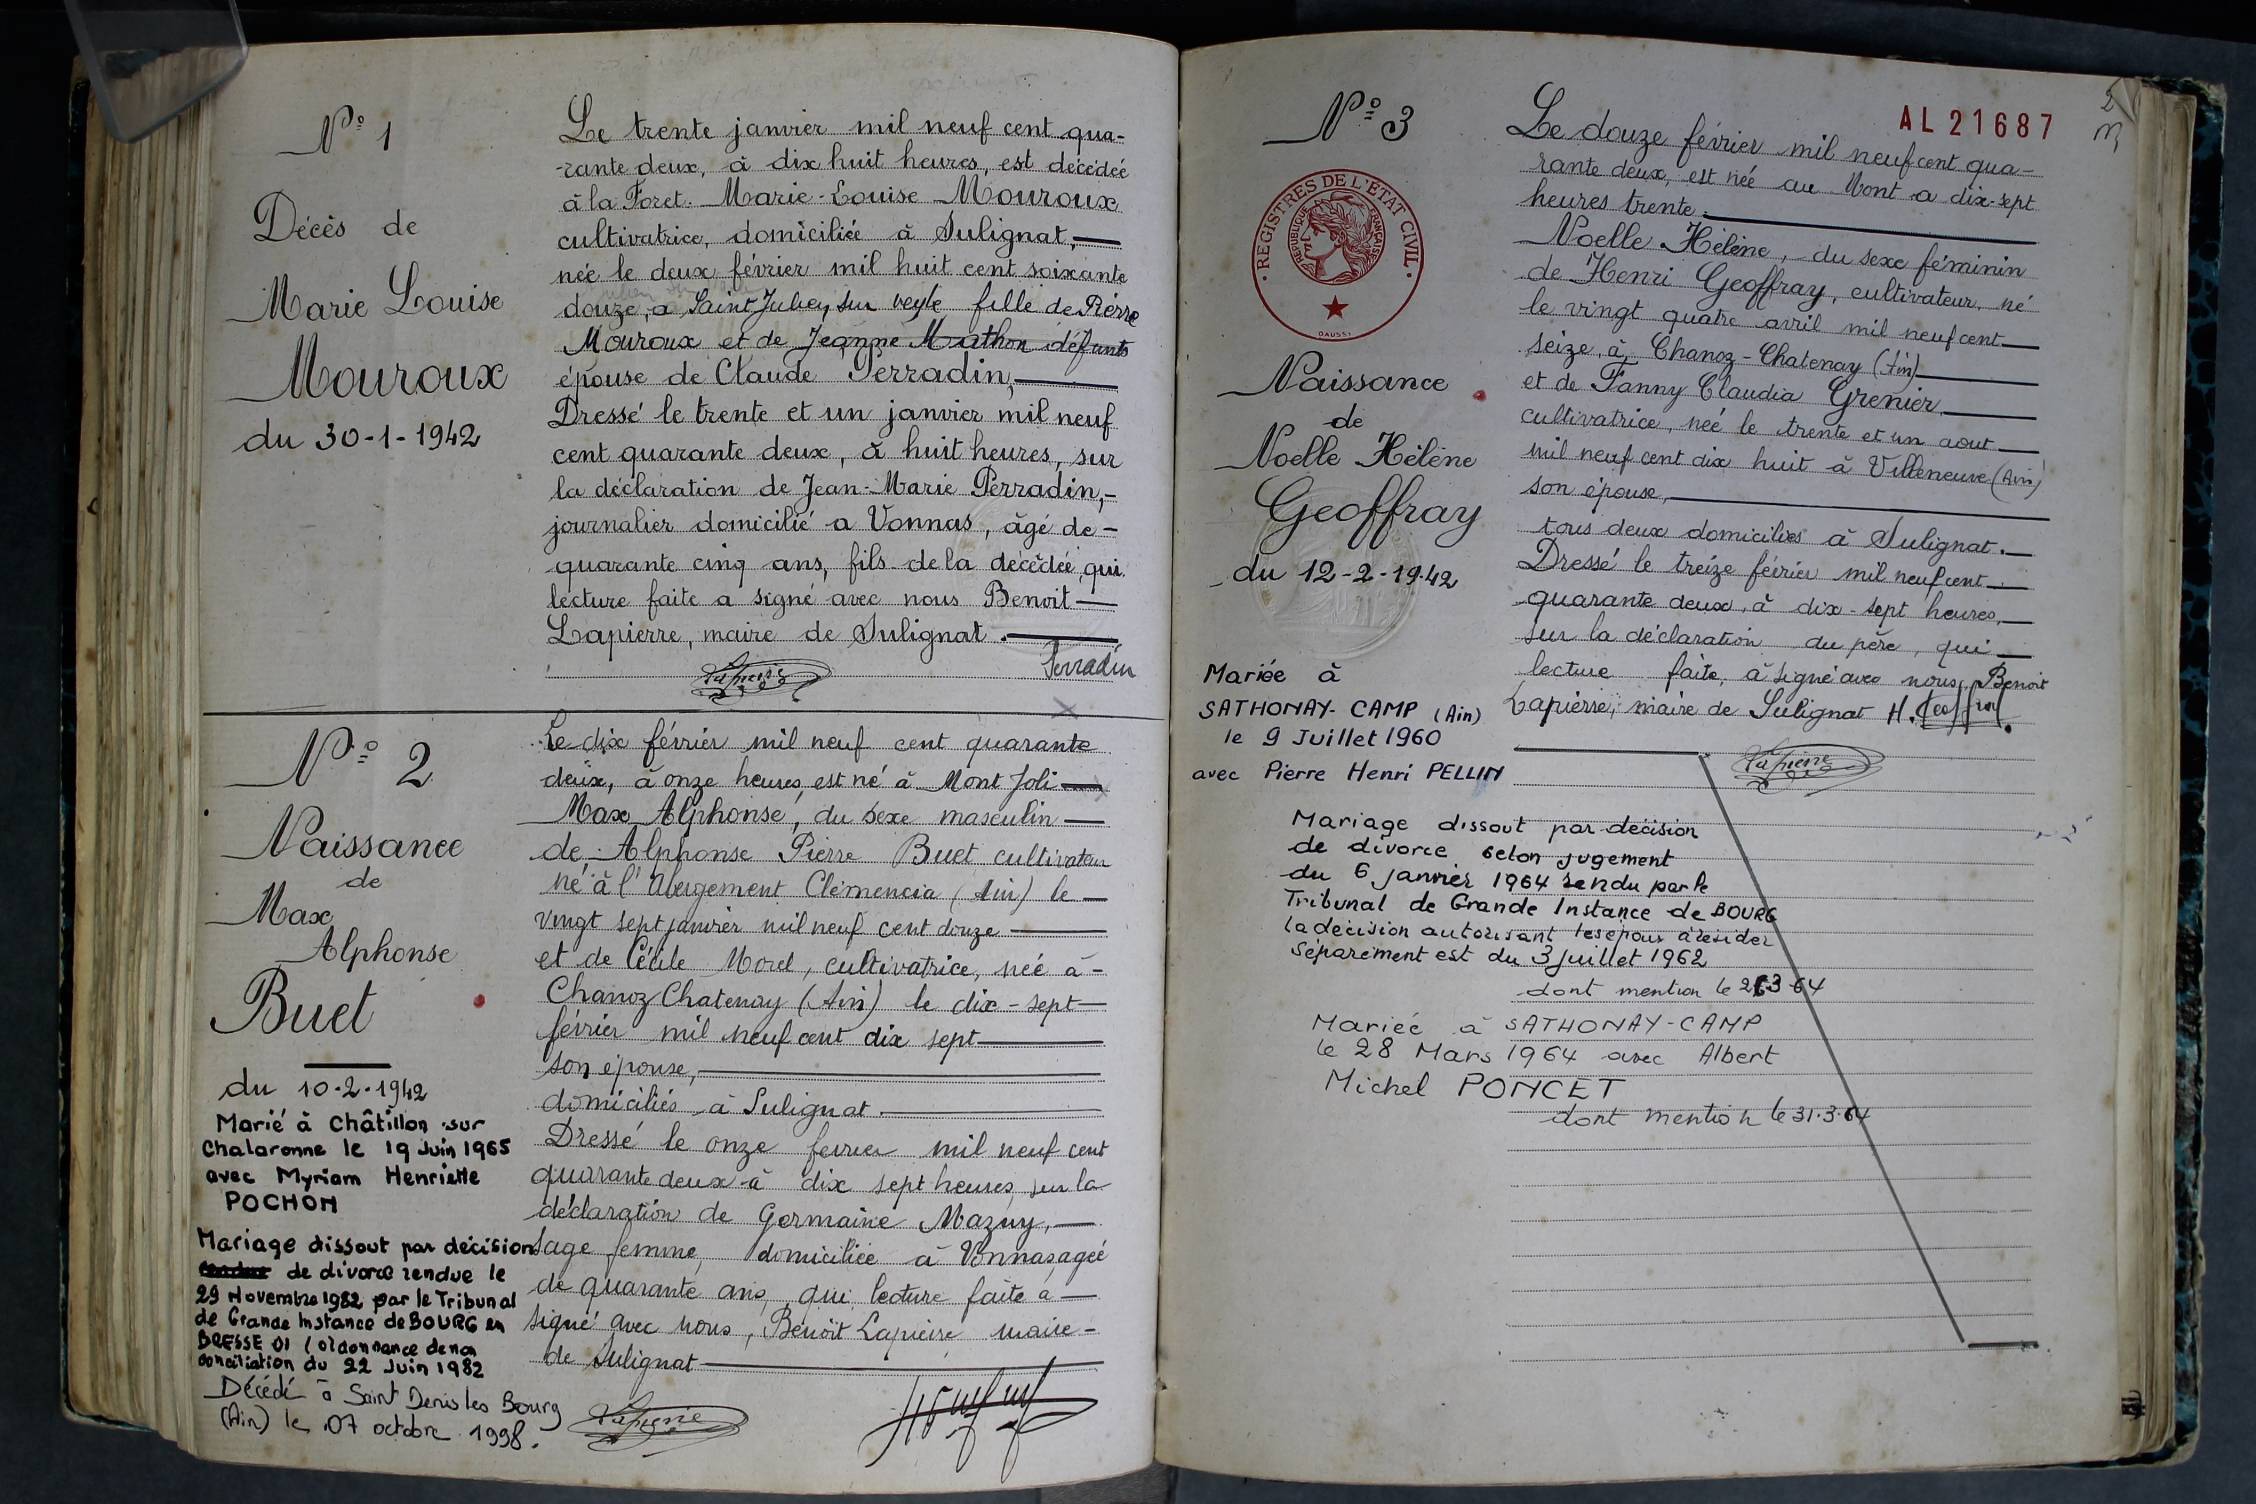 N° 1
Décès de
Marie Louise
Mouroux
du 30-1-1942
Le trente janvier mil neuf cent qua-
-rante deux, à dix huit heures, est décédée
à la Foret. Marie-Louise Mouroux
cultivatrice, domiciliée à Sulignat,
née le deux février mil huit cent soixante
douze, a Saint Julien sur veyle fille de Pierre
Mouroux et de Jeanne Mathon défunts
épouse de Claude Perradin,
Dressé le trente et un janvier mil neuf
cent quarante deux, à huit heures, sur
la déclaration de Jean-Marie Perradin,-
journalier domicilié a Vonnas, âgé de-
quarante cinq ans, fils de la décédée, qui
lecture faite a signé avec nous Benoit
Lapierre, maire de Sulignat.
Perradin
Lapierre
N° 2
Naissance
de
Max
Alphonse
Buet
du 10-2-1942
Marié à Châtillon sur
Chalaronne le 19 Juin 1965
avec Myriam Henriette
POCHON
Mariage dissout par décision
de divorce rendue le
29 Novembre 1982 par le Tribunal
de Grande Instance de BOURG en
BRESSE 01 (ordonnance de non
conciliation du 22 Juin 1982
Décédé à Saint Denis les Bourg
(Ain) le 07 octobre 1998.
Le dix février mil neuf cent quarante
deux, à onze heures, est né à Mont Joli
Max Alphonse, du sexe masculin
de Alphonse Pierre Buet cultivateur
né à l'Abergement Clémencia (Ain) le
vingt sept janvier mil neuf cent douze
et de Cécile Morel, cultivatrice, née à-
Chanoz Chatenay (Ain) le dix-sept
février mil neuf cent dix sept
son épouse,
domiciliés à Sulignat.
Dressé le onze fevrier mil neuf cent
quarante deux à dix sept heures, sur la
déclaration de Germaine Mazuy,
sage femme, domiciliée à Vonnas, agée
de quarante ans, qui, lecture faite a
signé avec nous, Benoît Lapierre maire-
de Sulignat
Lapierre
N° 3
REGISTRES DE L'ÉTAT CIVIL
REPUBLIQUE FRANÇAISE
DAUSSY
Naissance
de
Noelle Hélène
Geoffray
du 12-2-1942
Mariée à
SATHONAY-CAMP (Ain)
le 9 Juillet 1960
avec Pierre Henri PELLIN
AL 21687
2
Le douze février mil neuf cent qua-
rante deux, est née au Mont a dix-sept
heures trente
Noelle Hélène, du sexe féminin
de Henri Geoffray, cultivateur, né
le vingt quatre avril mil neuf cent
seize, à Chanoz-Chatenay (Ain)
et de Fanny Claudia Grenier
cultivatrice, née le trente et un aout
mil neuf cent dix huit à Villeneuve (Ain)
son épouse,
tous deux domiciliés à Sulignat.
Dressé le treize février mil neuf cent
quarante deux, à dix-sept heures,
sur la déclaration du père, qui
lecture faite, à signé avec nous Benoit
Lapierre, maire de Sulignat H. Geoffray
Lapierre
Mariage dissout par décision
de divorce selon jugement
du 6 janvier 1964 rendu par le
Tribunal de Grande Instance de BOURG
la décision autorisant les époux à résider
séparément est du 3 juillet 1962
dont mention le 3-64
Mariée à SATHONAY-CAMP
le 28 Mars 1964 avec Albert
Michel PONCET
dont mention le 31.3.64